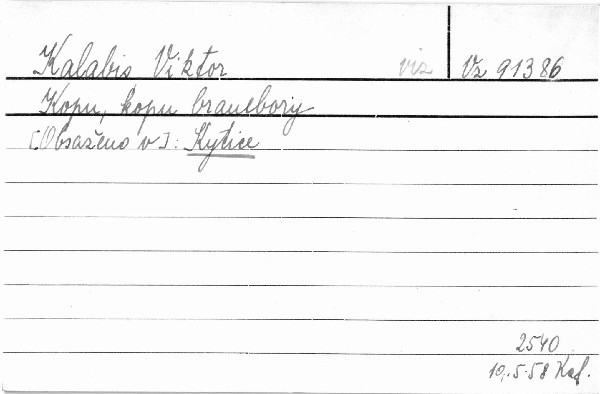 Kalabis Viktor viz Vz 91386
Kopu, kopu branebory
[Obsaženo v]: Kytice
2540
10.5.58 Kaf.